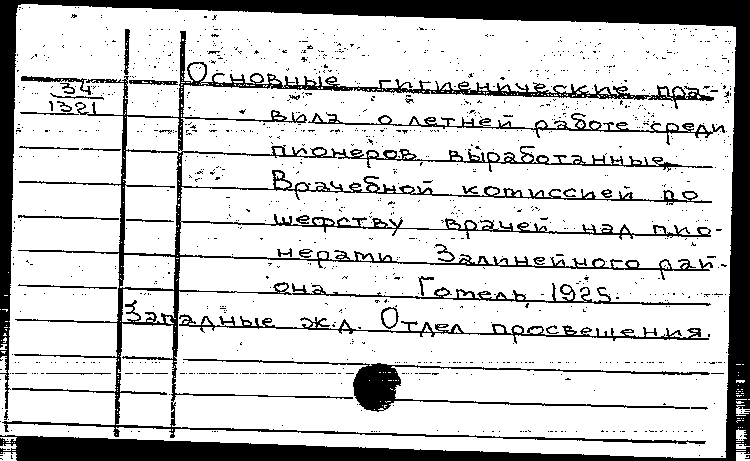 Основные гигиенические пра-
34
1321
вила о летней работе среди
пионеров, выработанные
Врачебной комиссией по
шефству врачей над пио-
нерами Залинейного рай-
она. Гомель, 1925.
Западные ж.д. Отдел просвещения.